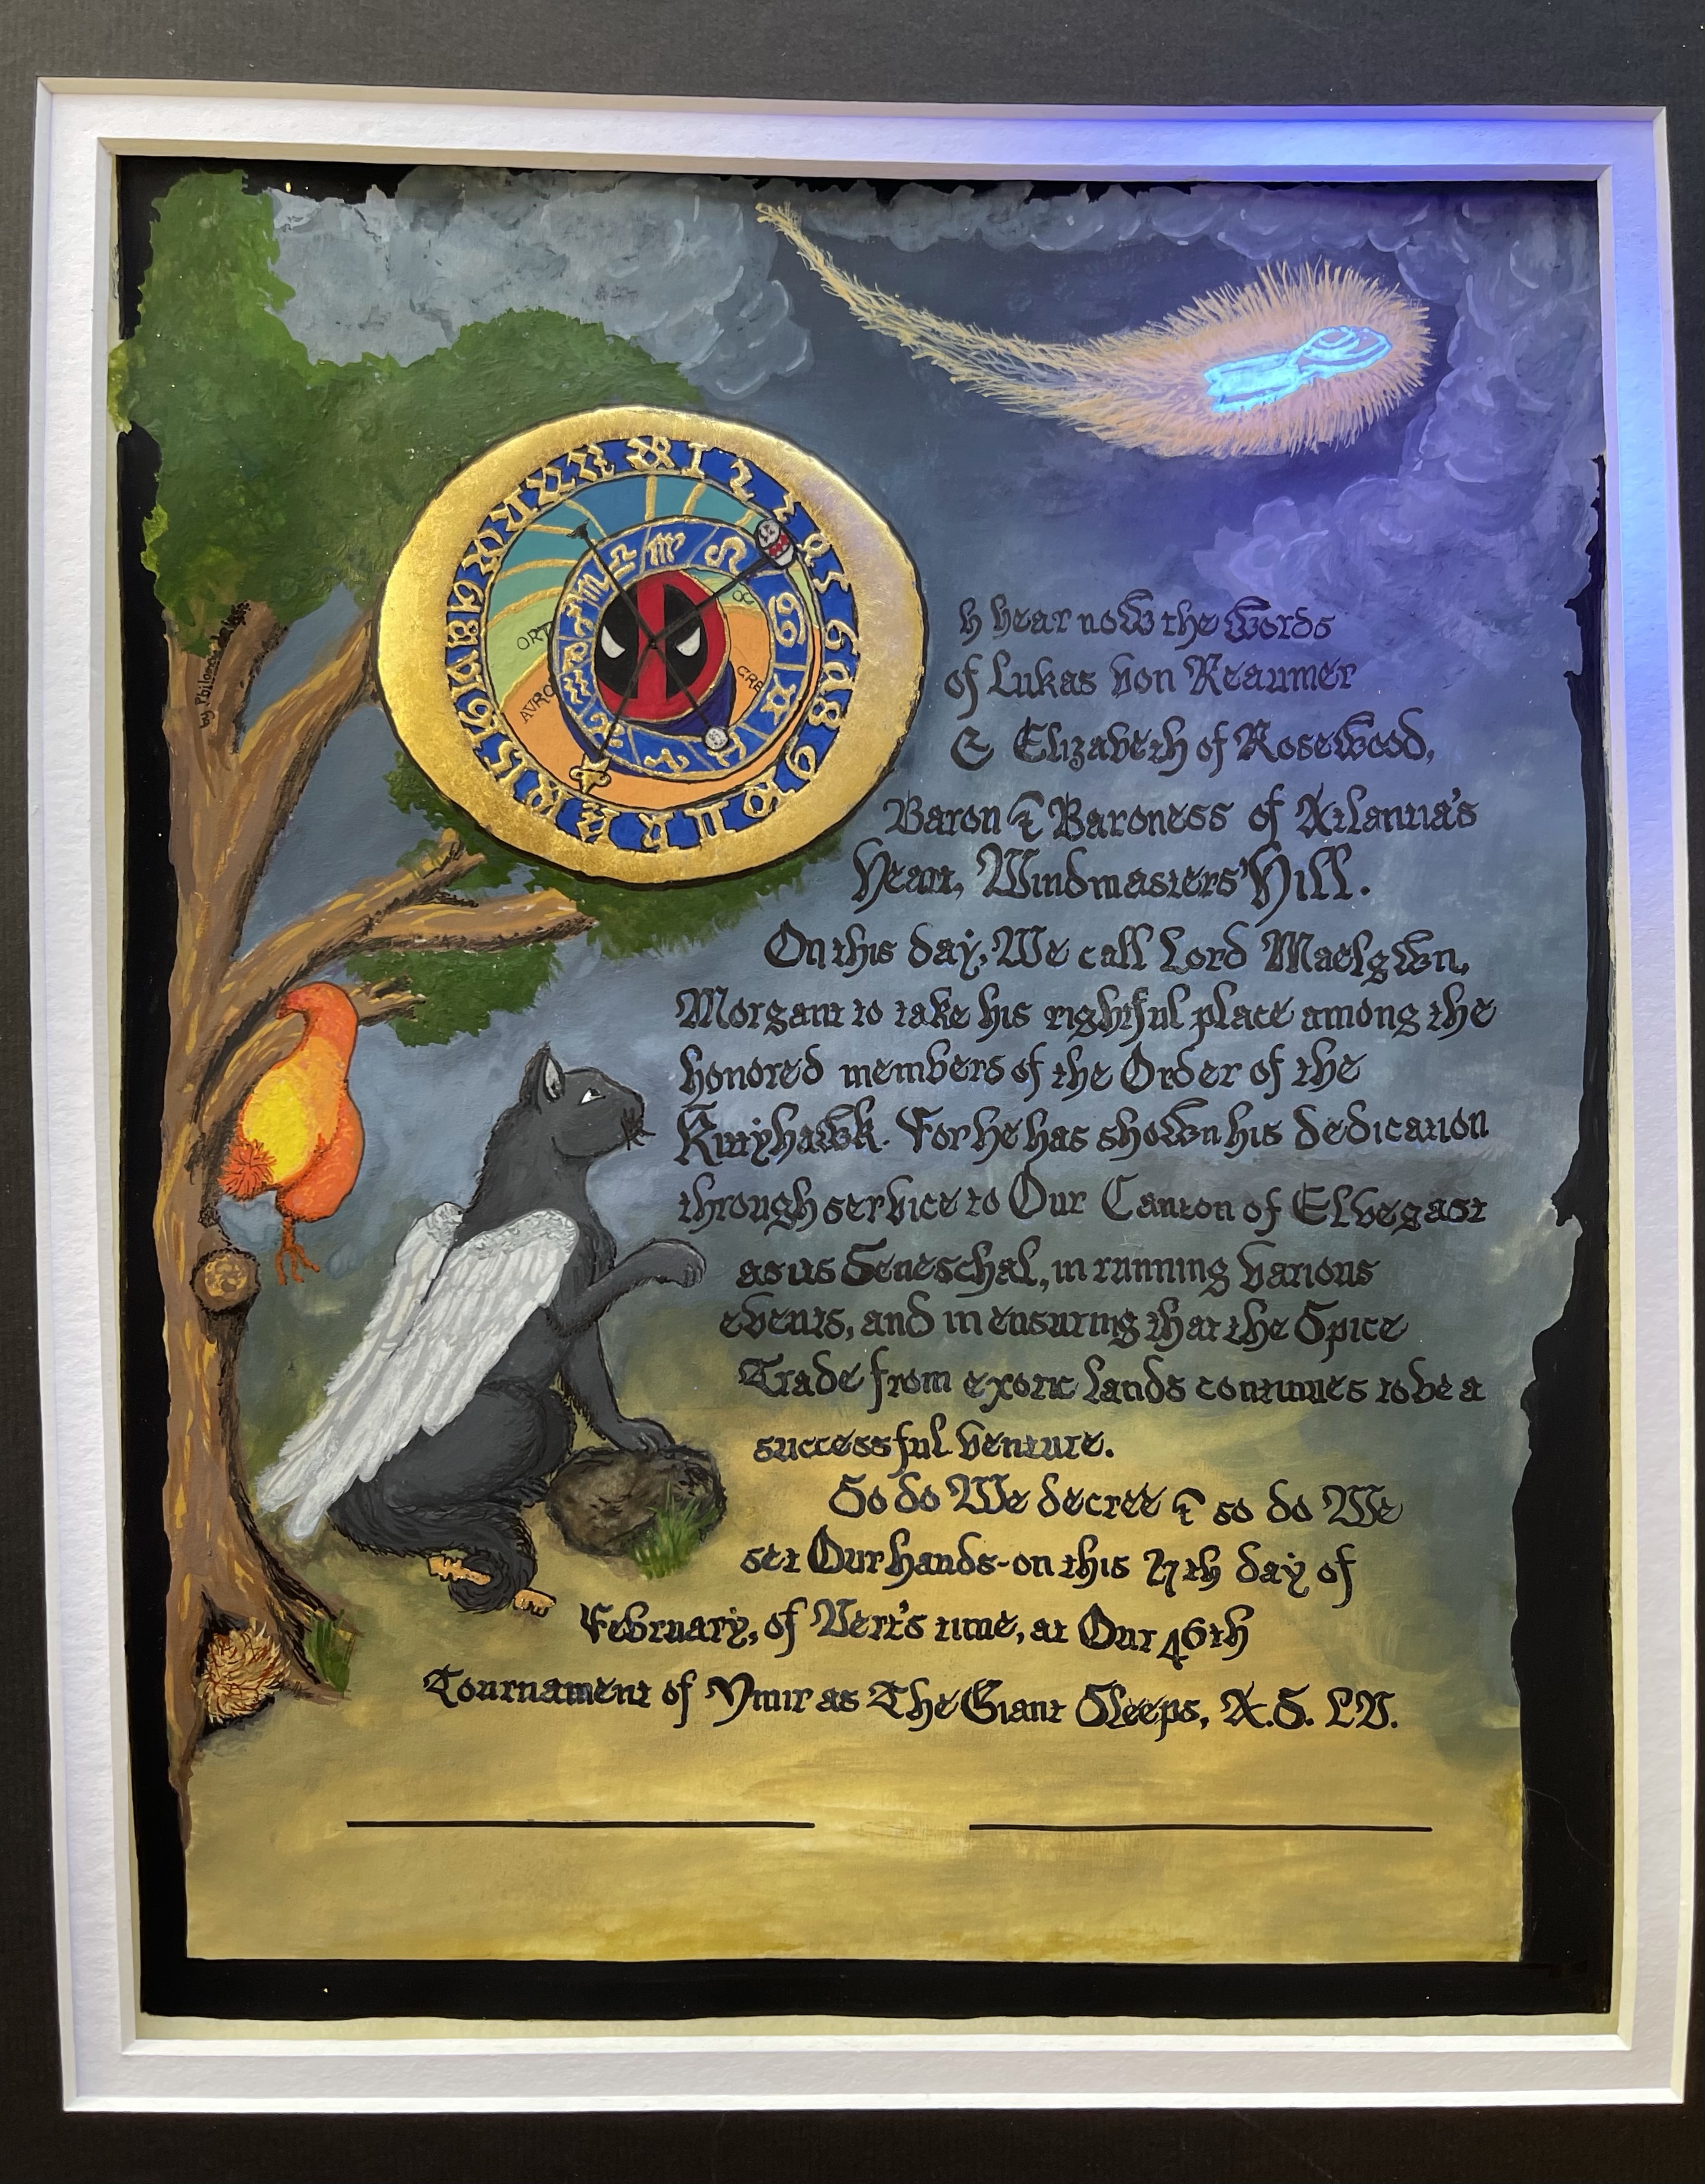 h hear now the words
of Lukas von Reaumer
& Elizabeth of Rosewood,
Baron & Baroness of Atlantia's
Heart, Windmasters' Hill.
On this day, We call Lord Maelgwn,
Morgant to take his rightful place among the
honored members of the Order of the
Kittyhawk. For he has shown his dedication
through service to Our Canton of Elvegast
as its Seneschal, in running various
events, and in ensuring that the Spice
Trade from exotic lands continues to be a
successful venture.
So do We decree & so do We
set Our hands-on this 27th day of
February, of Vert's time, at Our 46th
Tournament of Ymir as The Giant Sleeps, A.S. LV.
ORT
AVRO
CRE
OC